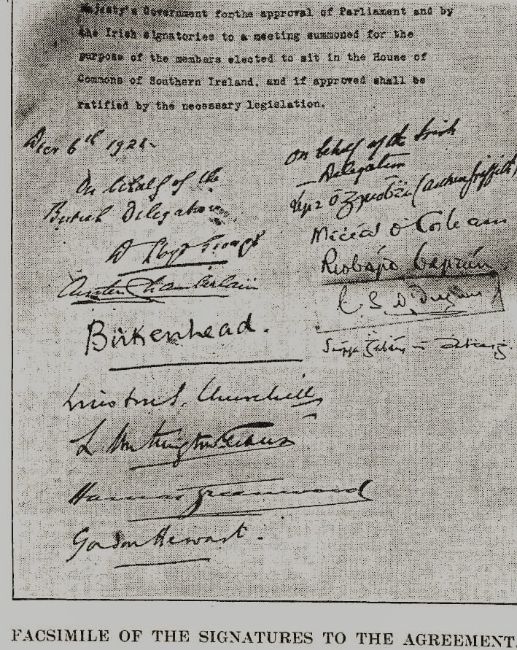 Majesty's Government for the approval of Parliament and by
the Irish signatories to a meeting summoned for the
purpose of the members elected to sit in the House of
Commons of Southern Ireland, and if approved shall be
ratified by the necessary legislation.
Decr 6th 1921.
On behalf of the
British Delegation
D Lloyd George
Austen Chamberlain
Birkenhead.
Winston S. Churchill
L Worthington Evans
Hamar Greenwood
Gordon Hewart.
On behalf of the Irish
Delegation
(Arthur Griffith)
Mícéal
Riobárd
FACSIMILE OF THE SIGNATURES TO THE AGREEMENT.